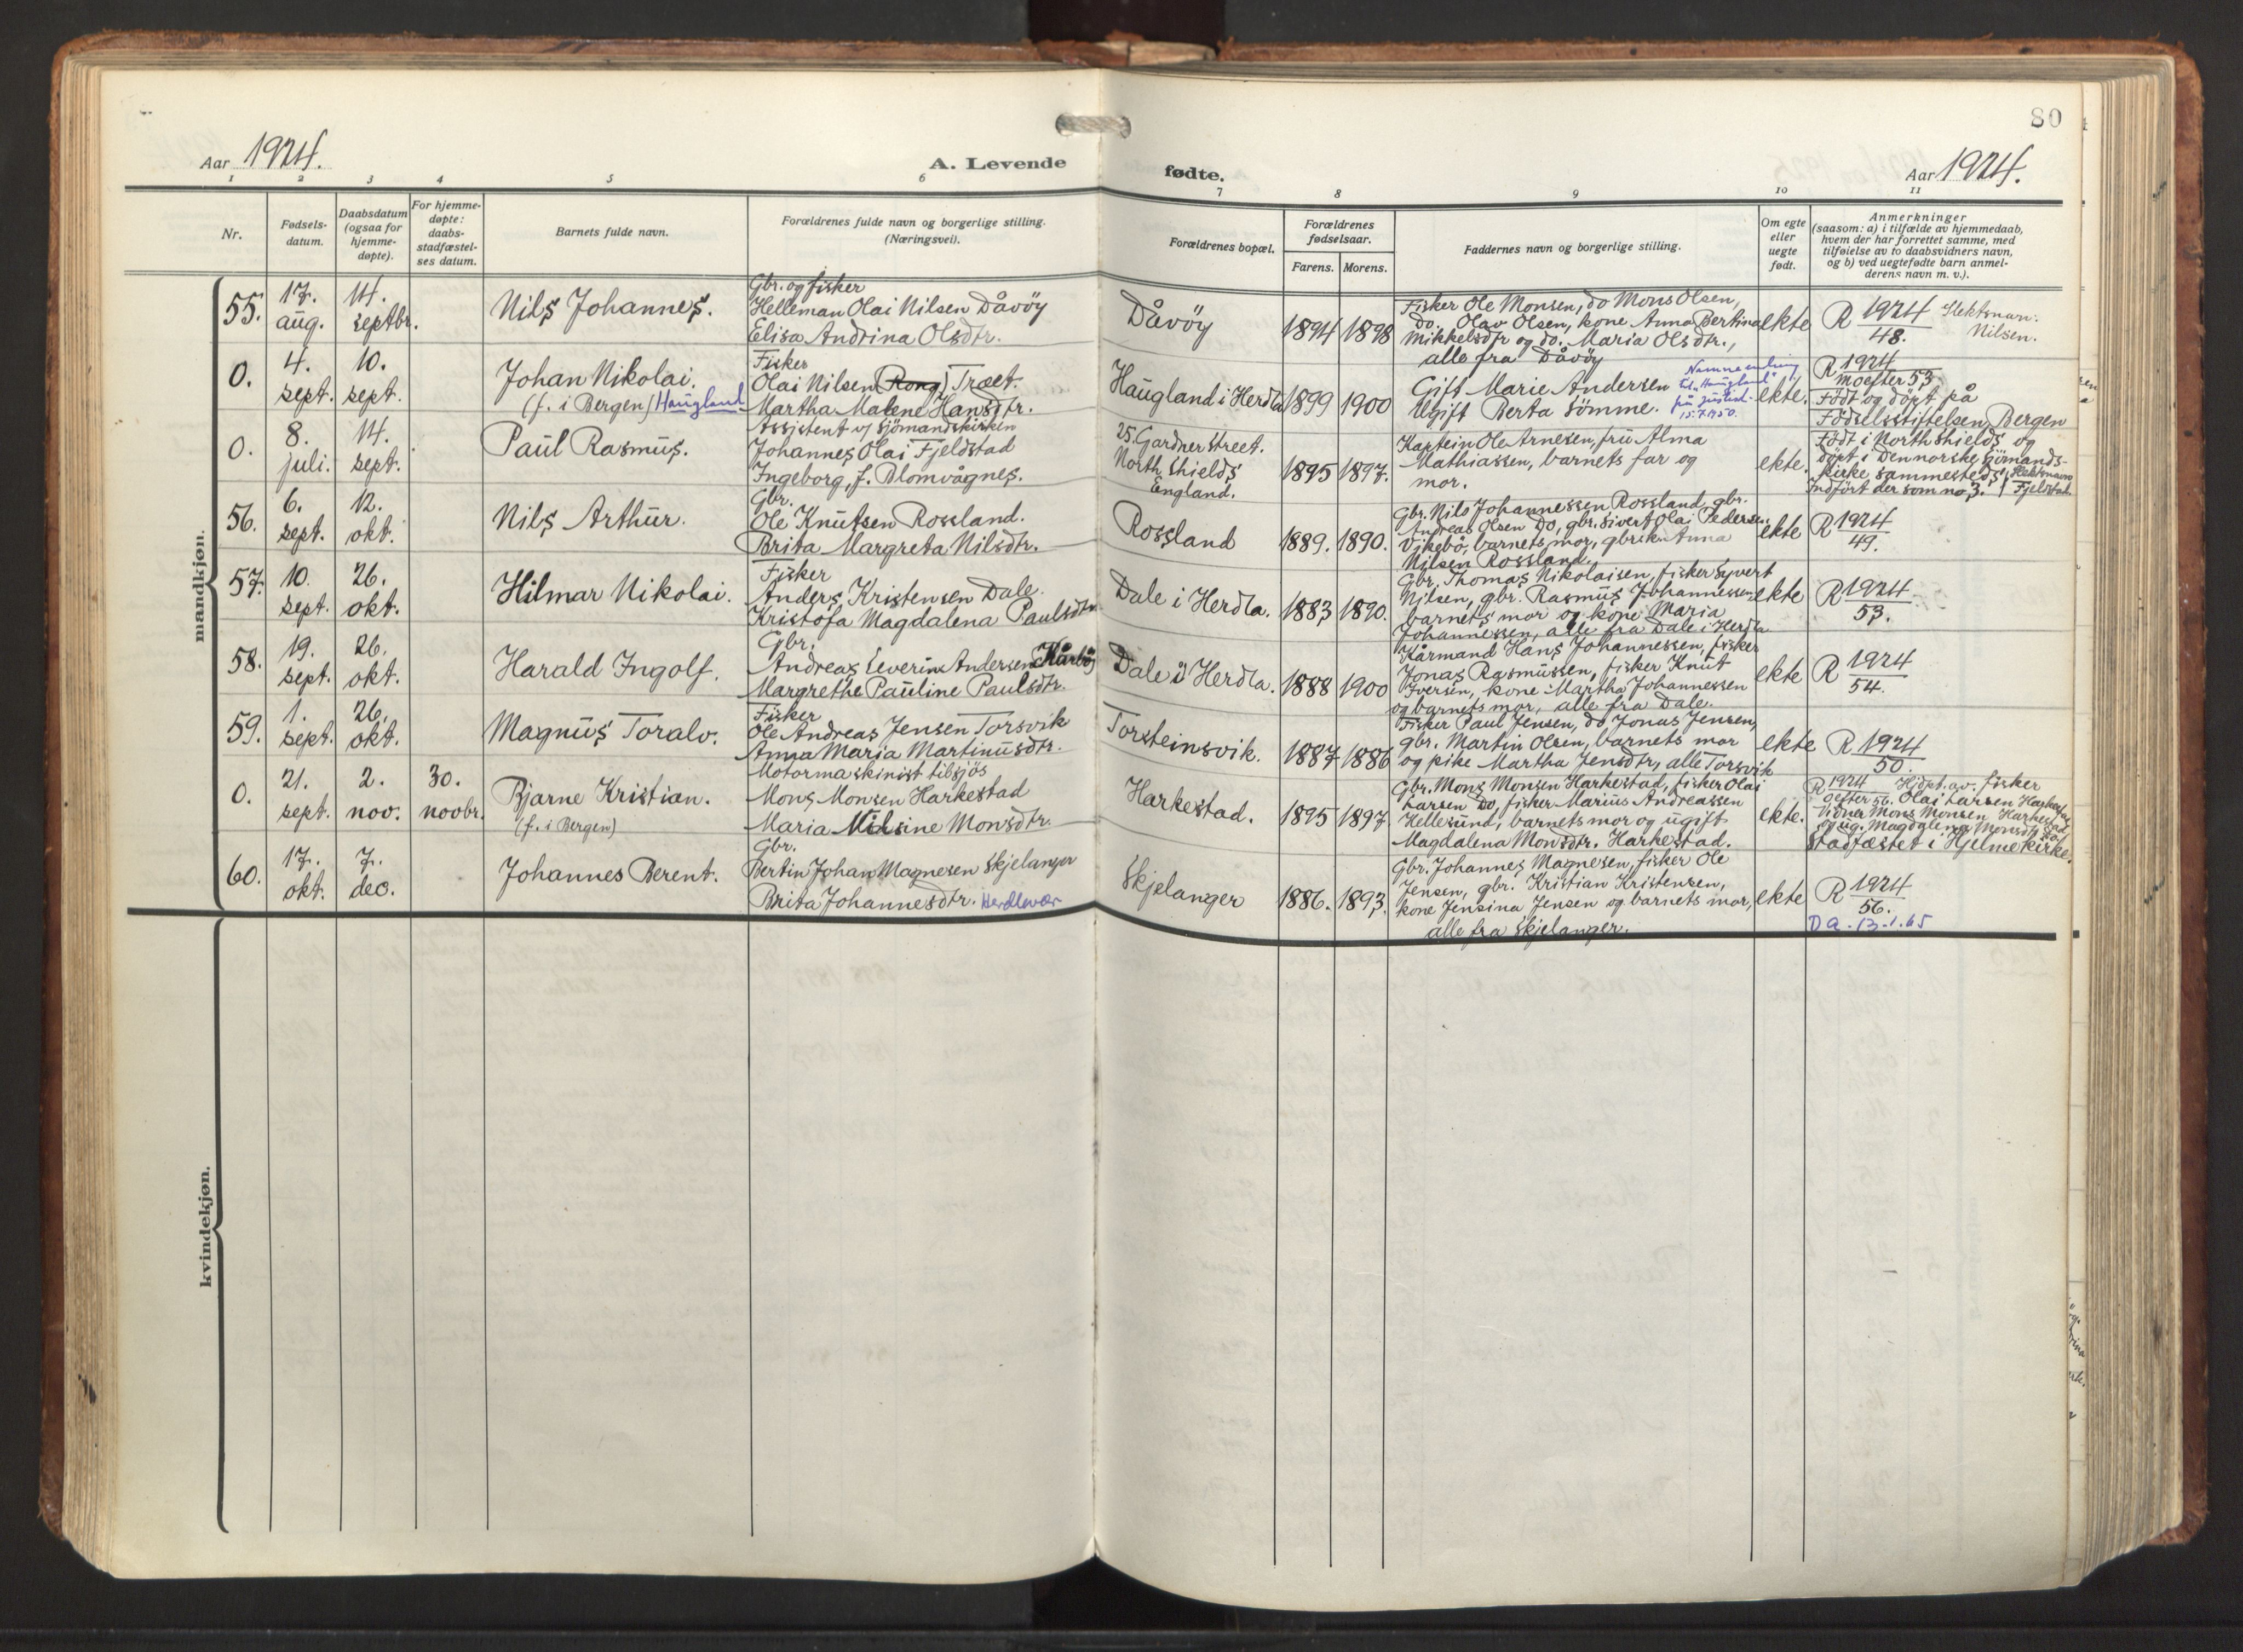 80
Aar 1924.
A. Levende
fødte.
Aar 1924.
1 2 3 4 5 6 7 8 9 10 11
Nr.
Fødsels-
datum.
Daabsdatum
(ogsaa for
hjemme-
døpte).
For hjemme-
døpte:
daabs-
stadfæstel-
ses datum.
Barnets fulde navn.
Forældrenes fulde navn og borgerlige stilling.
(Næringsvei).
Forældrenes bopæl.
Forældrenes
fødselsaar.
Farens. Morens.
Faddernes navn og borgerlige stilling.
Om egte
eller
uegte
født.
Anmerkninger
(saasom: a) i tilfælde av hjemmedaab,
hvem der har forrettet samme, med
tilføielse av to daabsvidners navn,
og b) ved uegtefødte barn anmel-
derens navn m. v.).
mandkjøn.
55.
17.
aug.
14.
septbr.
Nils Johannes.
Gbr. og fisker
Helleman Olai Nilsen Dåvöy
Elisa Andrina Olsdtr.
Dåvöy
1894 1898
Fisker Ole Monsen, do Mons Olsen,
do. Olav Olsen, kone Anna Bertina
Mikkelsdtr og do. Maria Olsdtr.,
alle fra Dåvöy
ekte
R 1924
48.
Slektsnavn:
Nilsen.
0.
4.
sept.
10.
sept.
Johan Nikolai.
(f. i Bergen) Haugland
Fisker
Olai Nilsen (Rong) Træet.
Martha Malene Hansdtr.
Haugland i Herdla
1899 1900
Gift Marie Andersen
Ugift Berta Sömme.
Namneendring
til "Haugland"
frå Justisd.
15.7.1950.
ekte.
R 1924
m efter 53
Födt og döpt på
Födselsstiftelsen, Bergen
0.
8.
juli.
14.
sept.
Paul Rasmus.
Assistent v/ Sjömandskirken
Johannes Olai Fjeldstad
Ingeborg, f. Blomvågnes.
25. Gardner Street.
North Shields
England.
1895 1897.
Kaptein Ole Arnesen, fru Alma
Mathiassen, barnets far og
mor.
ekte.
Födt i North Shields og
döpt i Den norske Sjömands-
kirke sammesteds.
Indfört der som no 3.
Slektsnavn
Fjeldstad.
56.
6.
sept.
12.
okt.
Nils Arthur.
Gbr.
Ole Knutsen Rossland.
Brita Margreta Nilsdtr.
Rossland
1889. 1890.
Gbr. Nils Johannessen Rossland, gbr.
Andreas Olsen do, gbr. Sivert Olai Pedersen
Vikebö, barnets mor, gbrskn Anna
Nilsen Rossland.
ekte
R 1924
49.
57.
10.
sept.
26.
okt.
Hilmar Nikolai.
Fisker
Anders Kristensen Dale.
Kristofa Magdalena Paulsdtr.
Dale i Herdla.
1883 1890.
Gbr. Thomas Nikolaisen, fisker Syvert
Nilsen, gbr. Rasmus Johannessen
barnets mor og kone Maria
Johannessen, alle fra Dale i Herdla
ekte
R 1924
53.
58.
19.
sept.
26.
okt.
Harald Ingolf.
Gbr.
Andreas Severin Andersen Kårbö
Margrethe Pauline Paulsdtr.
Dale i Herdla.
1888 1900
Kårmand Hans Johannessen, fisker
Jonas Rasmussen, fisker Knut
Iversen, kone Martha Johannessen
og barnets mor, alle fra Dale.
ekte
R 1924
54.
59.
1.
sept.
26.
okt.
Magnus Toralv.
Fisker
Ole Andreas Jensen Torsvik
Anna Maria Martinusdtr.
Torsteinsvik.
1887 1886
Fisker Paul Jensen, do Jonas Jensen,
gbr. Martin Olsen, barnets mor
og pike Martha Jensdtr, alle Torsvik
ekte
R 1924
50.
0.
21.
sept.
2.
nov.
30.
novbr.
Bjarne Kristian.
(f. i Bergen)
Motormaskinist tilsjös
Mons Monsen Harkestad
Maria Nilsine Monsdtr.
Harkestad.
1895 1897.
Gbr. Mons Monsen Harkestad, fisker Olai
Larsen do, fisker Marius Andreassen
Hellesund, barnets mor og ugift
Magdalena Monsdtr. Harkestad.
ekte.
R 1924
efter 56.
Hjdpt. av. fisker
Olai Larsen Harkestad
Vidner Mons Monsen Harkestad
og ug. Magdalena Monsdtr do.
Stadfæstet i Hjelme kirke.
60.
17.
okt.
7.
dec.
Johannes Berent.
Gbr.
Bertin Johan Magnesen Skjelanger
Brita Johannesdtr. Herdlevær
Skjelanger
1886. 1893.
Gbr. Johannes Magnesen, fisker Ole
Jensen, gbr. Kristian Kristensen,
kone Jensina Jensen og barnets mor,
alle fra Skjelanger.
ekte
R 1924
56.
DA. 13-1.65
kvindekjøn.